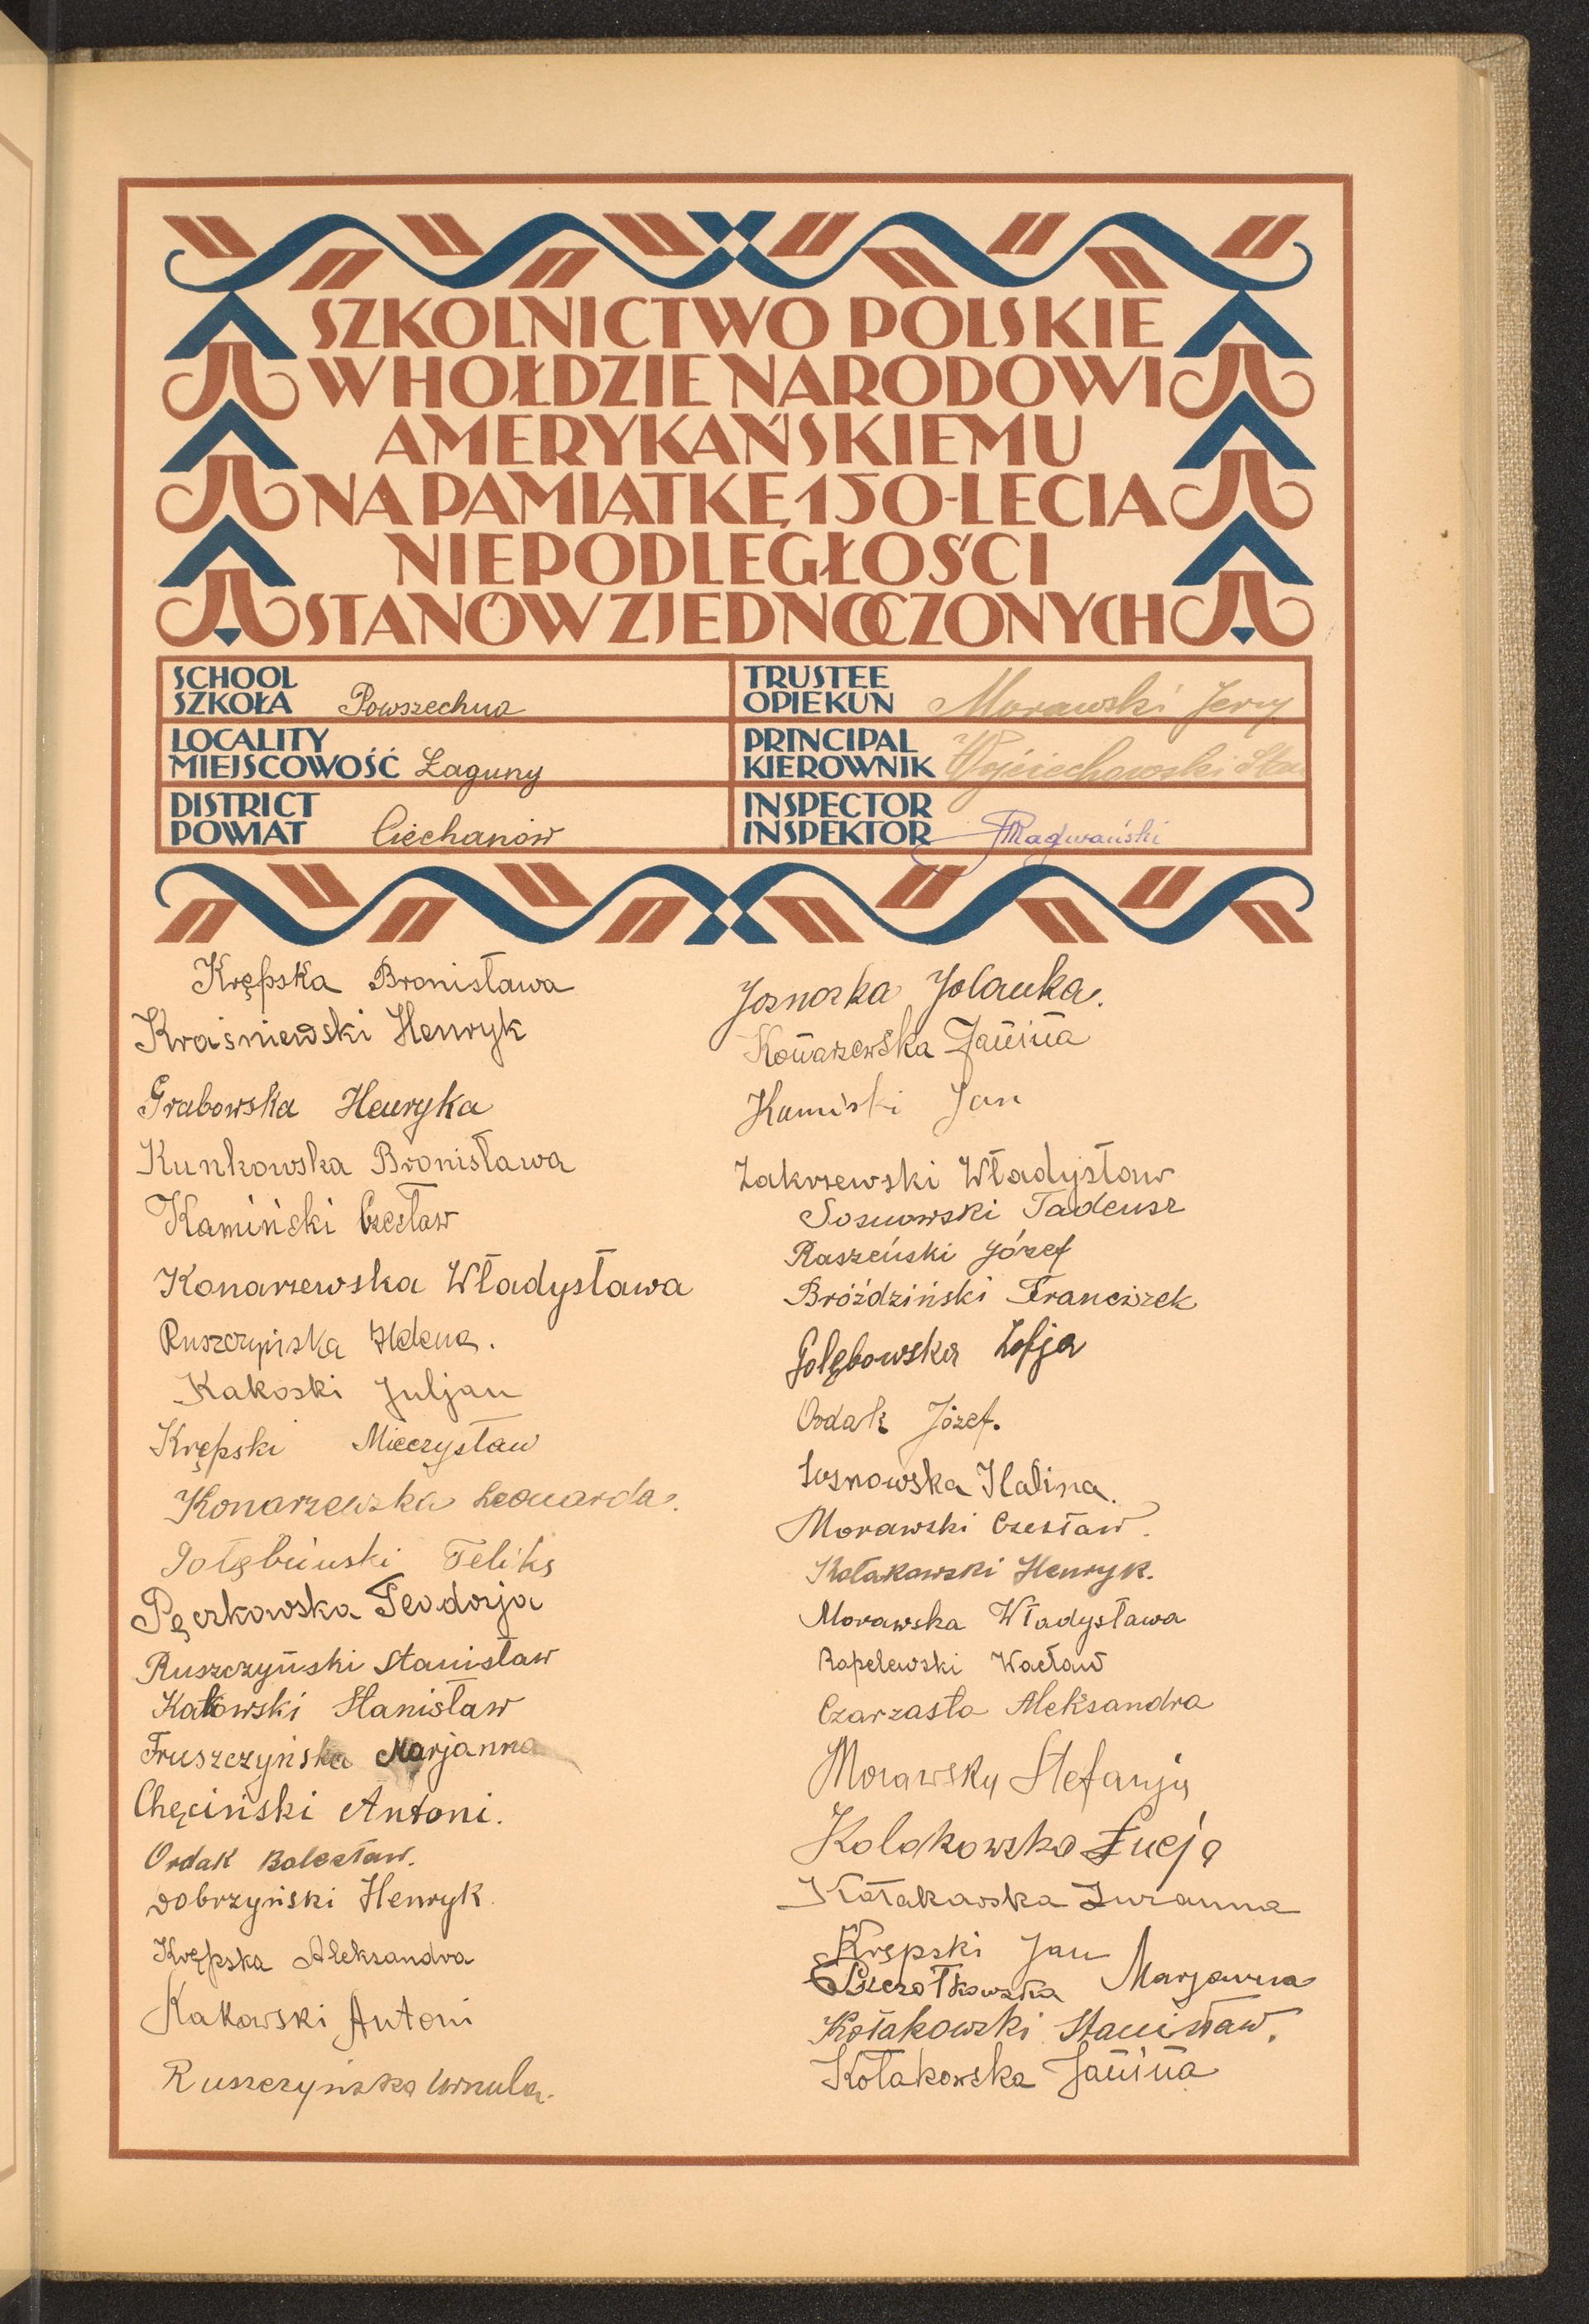 SZKOLNICTWO POLSKIE
W HOŁDZIE NARODOWI
AMERYKAŃSKIEMU
NA PAMIĄTKĘ 150-LECIA
NIEPODLEGŁOŚCI
STANÓW ZJEDNOCZONYCH
SCHOOL
SZKOŁA Powszechna
LOCALITY
MIEJSCOWOŚĆ Łaguny
DISTRICT
POWIAT Ciechanów
TRUSTEE
OPIEKUN Morawski Jerzy
PRINCIPAL
KIEROWNIK Wojciechowski Sta
INSPECTOR
INSPEKTOR
Krępska Bronisława
Kraśniewski Henryk
Grabowska Henryka
Kunkowska Bronisława
Kamiński Czesław
Konarzewska Władysława
Ruszczyńska Helena.
Kakoski Juljan
Krępski Mieczysław
Konarzewska Leonarda.
Gołębiuski Feliks
Pęczkowska Teodorja
Ruszczyński Stanisław
Kakowski Stanisław
Fruszczyńska Marjanna
Chęciński Antoni.
Ordak Bolesław.
Dobrzyński Henryk
Krępska Aleksandra
Kakowski Antoni
Ruszczyńska Urszula.
Jolanka.
Konarzewska Janina
Kamiski Jan
Zakrzewski Władysław
Sosnowski Tadeusz
Raszeński Józef
Bróździński Franciszek
Golębowska Zofja
Ordak Józef.
Sosnowska Halina.
Morawski Czesław.
Kołakowski Henryk.
Morawska Władysława
Rapelewski Wacław
Czarzasta Aleksandra
Morawska Stefanja
Kolakowska Łucja
Kołakowska Zuzanna
Krępski Jan
Szczotkowska Marjanna
Kołakowski Stanisław.
Kołakowska Janina